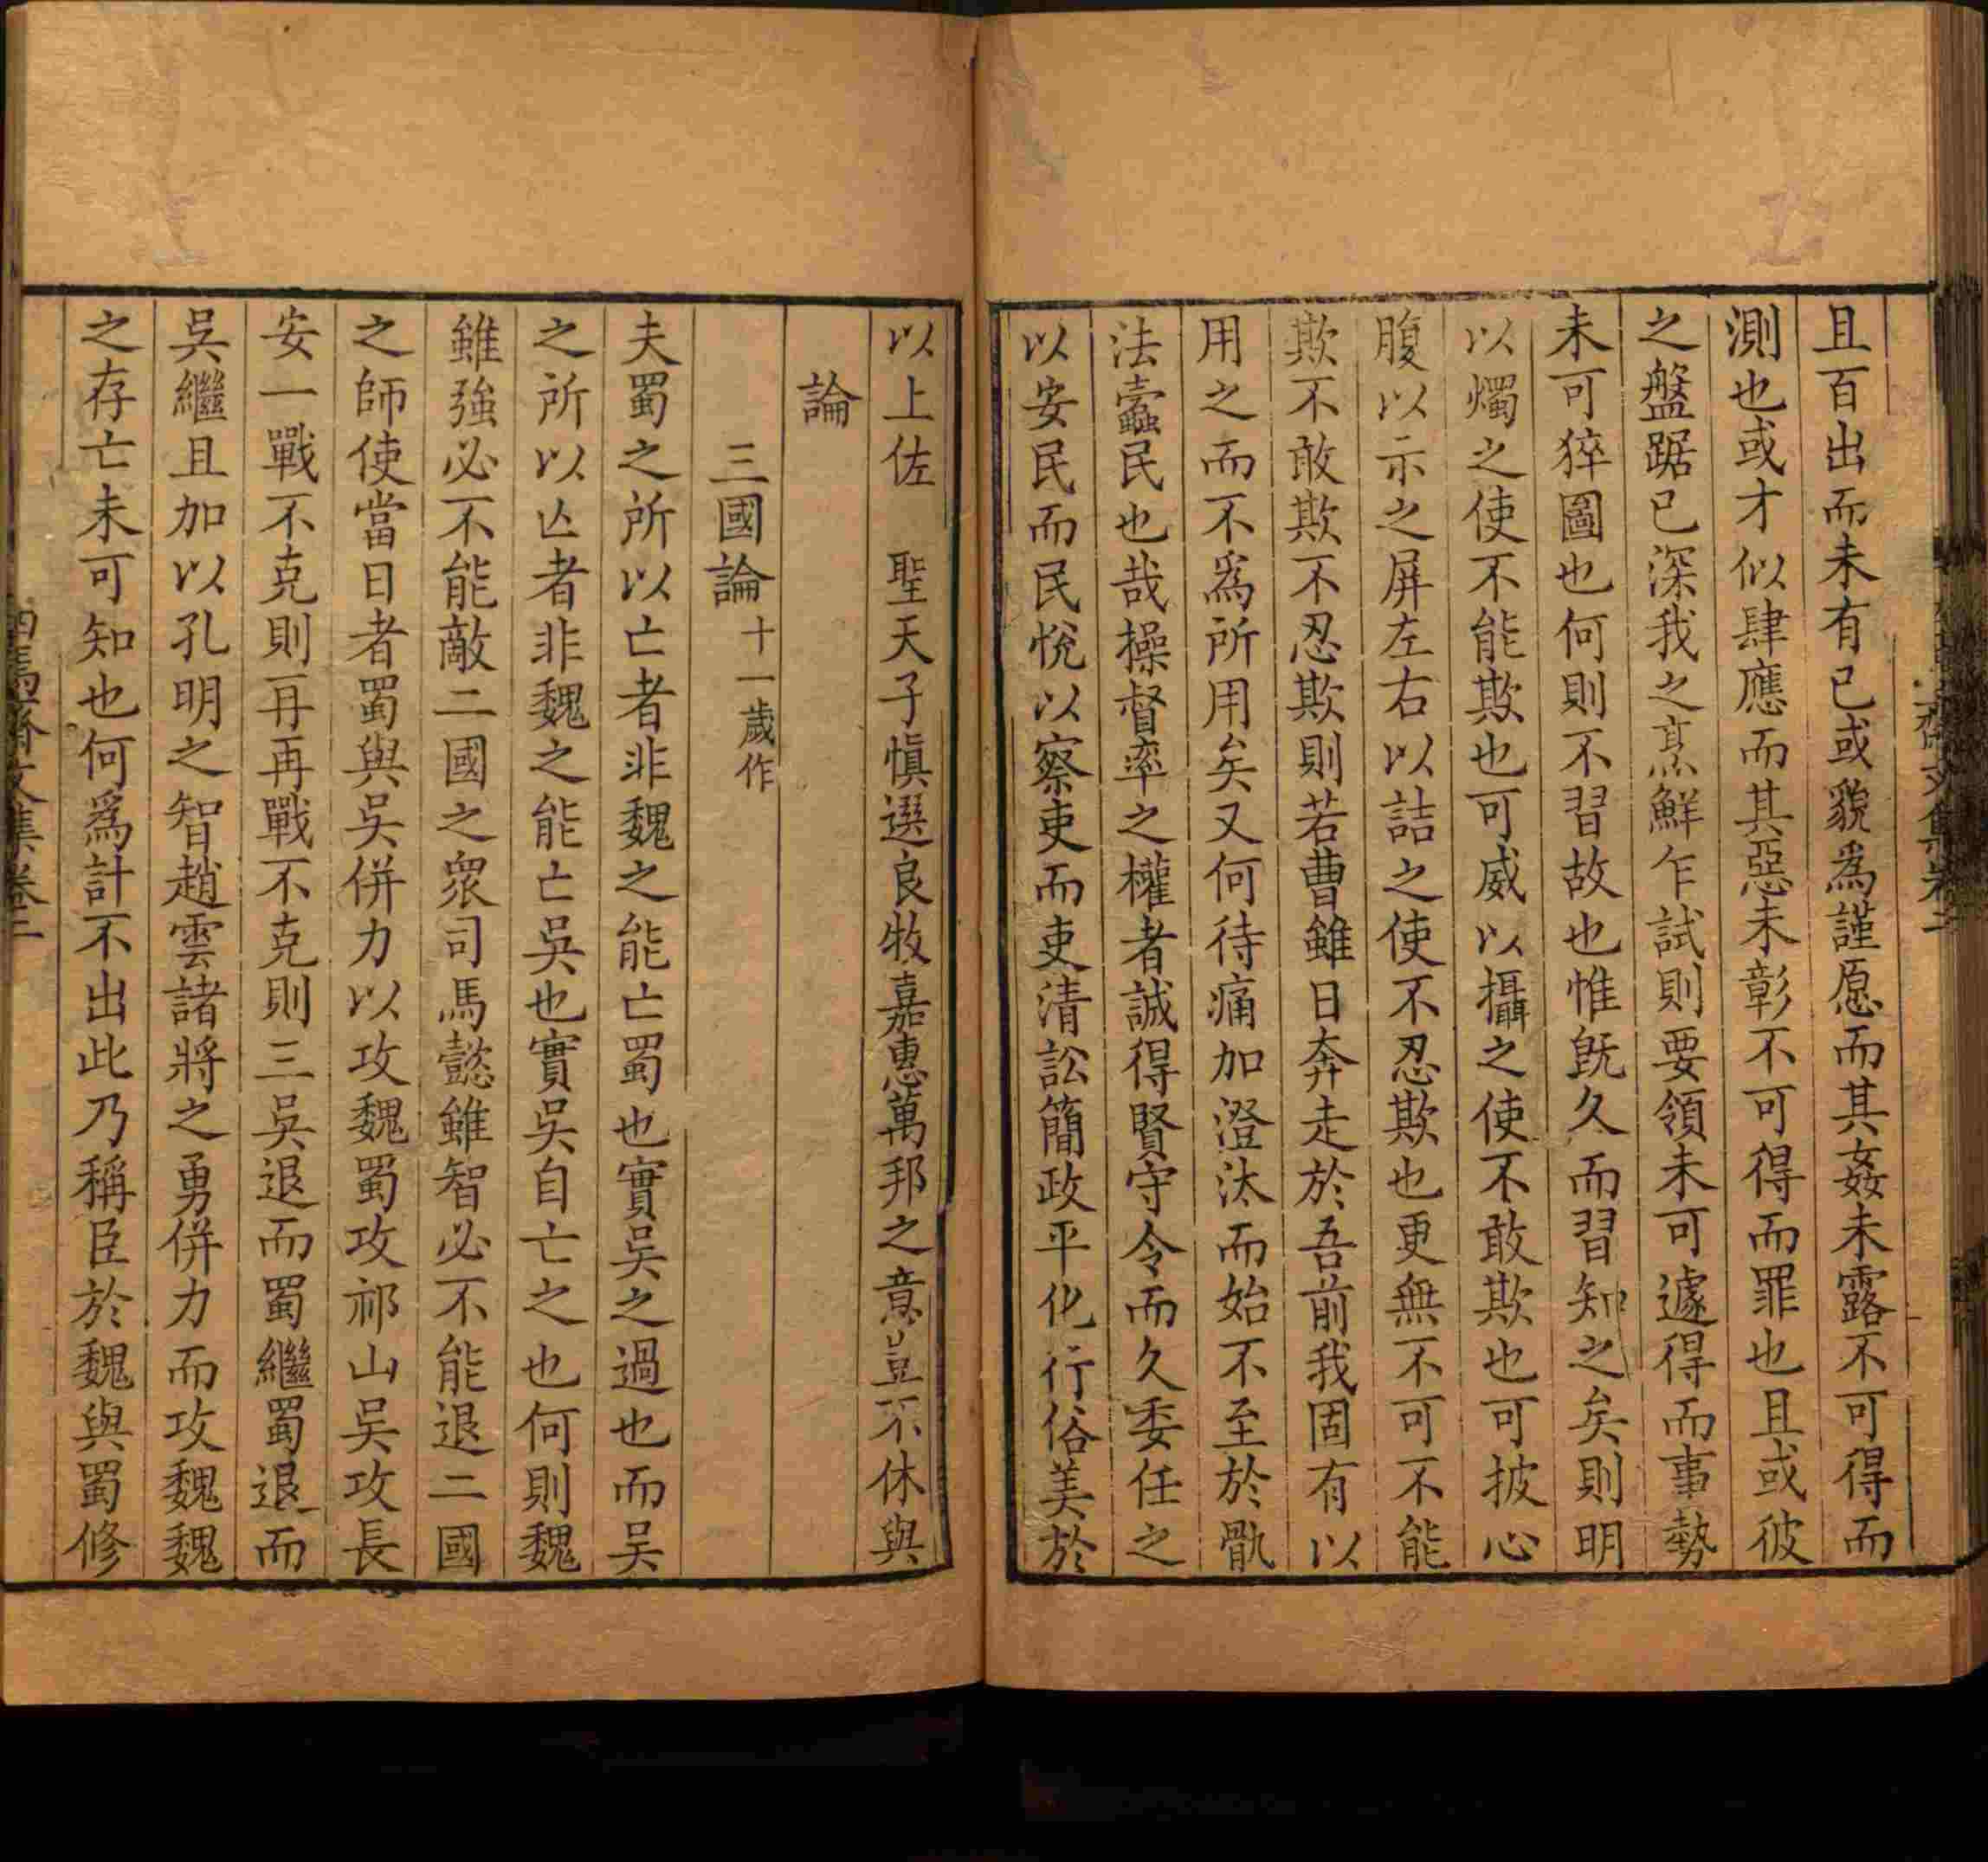 且百出而未有已或貌為謹愿而其姦未露不可得而
測也或才似肆應而其惡未彰不可得而罪也且或彼
之盤踞已深我之烹鮮乍試則要領未可遽得而事勢
未可猝圖也何則不習故也惟旣久而習知之矣則明
以燭之使不能欺也可威以攝之使不敢欺也可披心
腹以示之屏左右以詰之使不忍欺也更無不可不能
欺不敢欺不忍欺則若曹雖日奔走於吾前我固有以
用之而不為所用矣又何待痛加澄汰而始不至於骫
法蠹民也哉操督率之權者誠得賢守令而久委任之
以安民而民悅以察吏而吏清訟簡政平化行俗美於
以上佐　聖天子慎選良牧嘉惠萬邦之意豈不休與
論
三國論十一歲作
夫蜀之所以亡者非魏之能亡蜀也實吳之過也而吳
之所以亾者非魏之能亡吳也實吳自亡之也何則魏
雖強必不能敵二國之眾司馬懿雖智必不能退二國
之師使當日者蜀與吳併力以攻魏蜀攻祁山吳攻長
安一戰不克則再再戰不克則三吳退而蜀繼蜀退而
吳繼且加以孔明之智趙雲諸將之勇併力而攻魏魏
之存亡未可知也何為計不出此乃稱臣於魏與蜀修
齋文集卷二